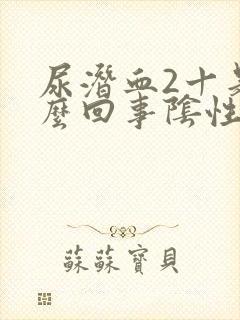 尿潛血2十
麼回事陰性
蘇蘇寶貝